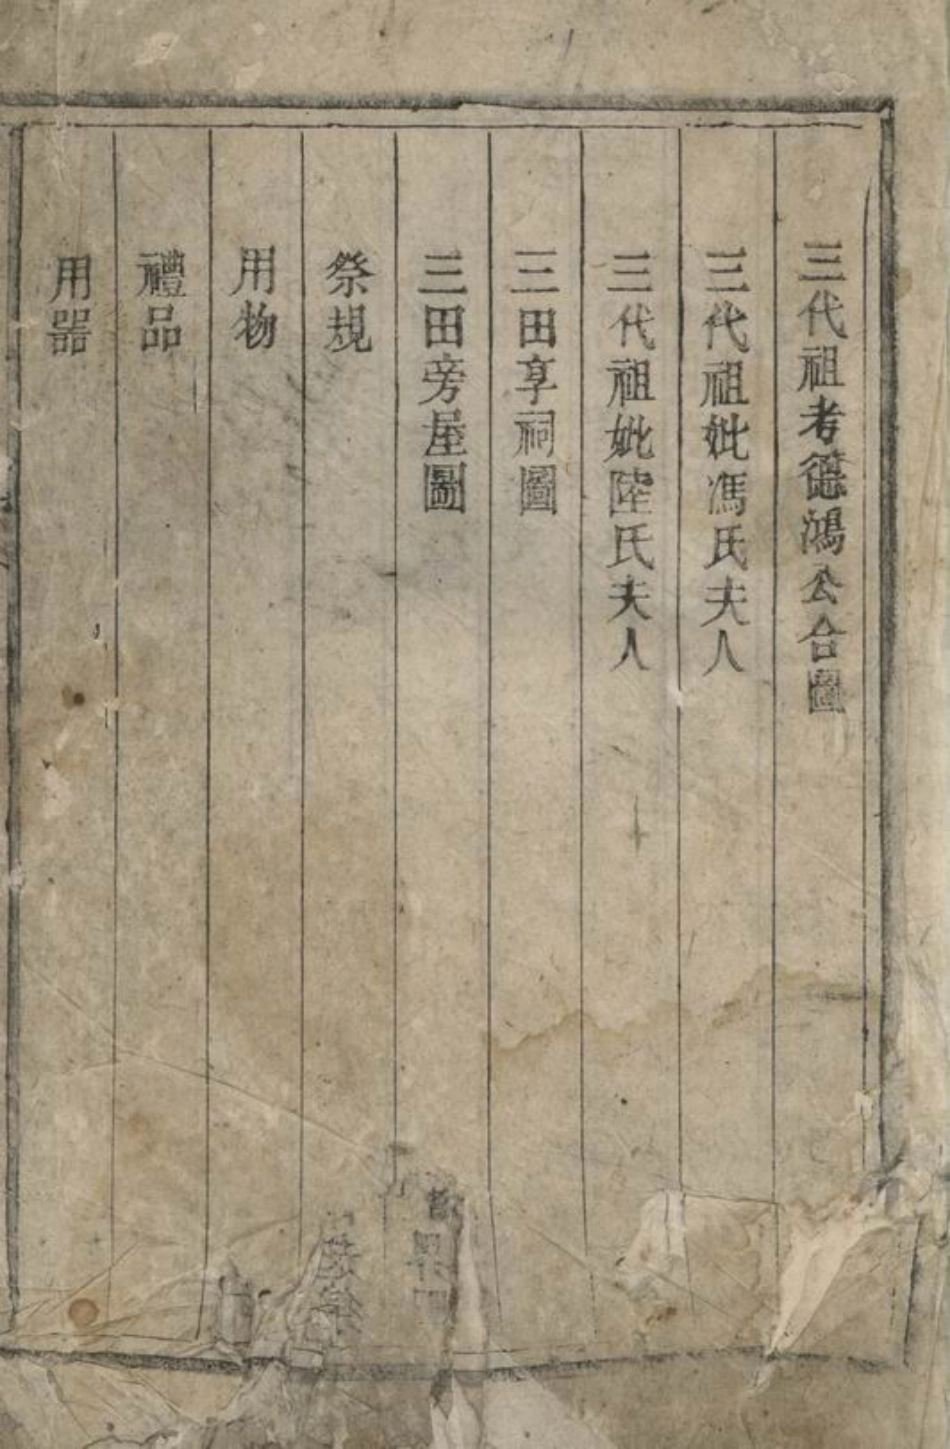 三代祖考德鴻公合圖
三代祖妣馮氏夫人
三代祖妣陸氏夫人
三田享祠圖
三田旁屋圖
祭規
用物
禮品
用器